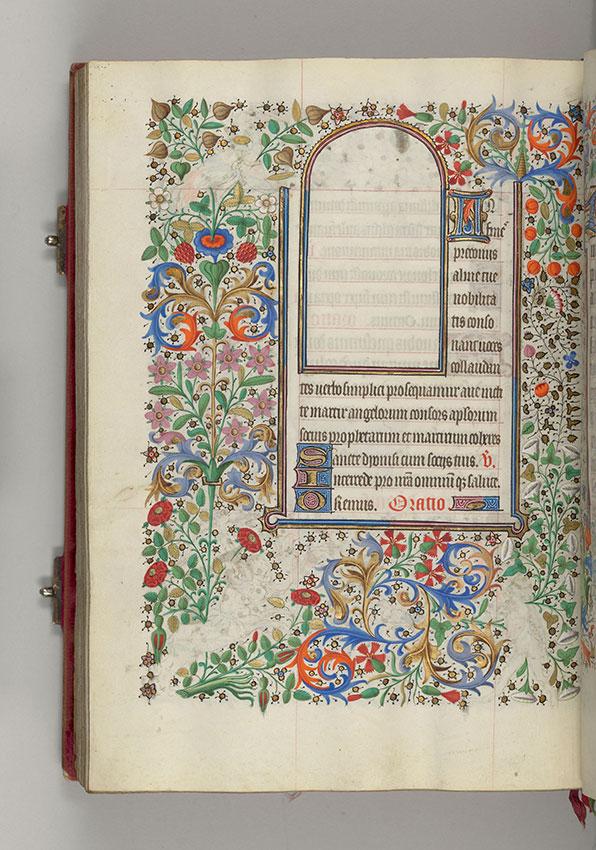 In
preconiis
alme tue
nobilita
tis conso
nant voces
collaudan
tes verbo simplici prosequamur ave incli
te martir angelorum consors apostolorum
socius prophetarum et martirum cohæres
Sancte dionisi cum sociis tuis. V̄.
Intercede pro nr̄a omnium q̄s salute.
Oremus. Oratio